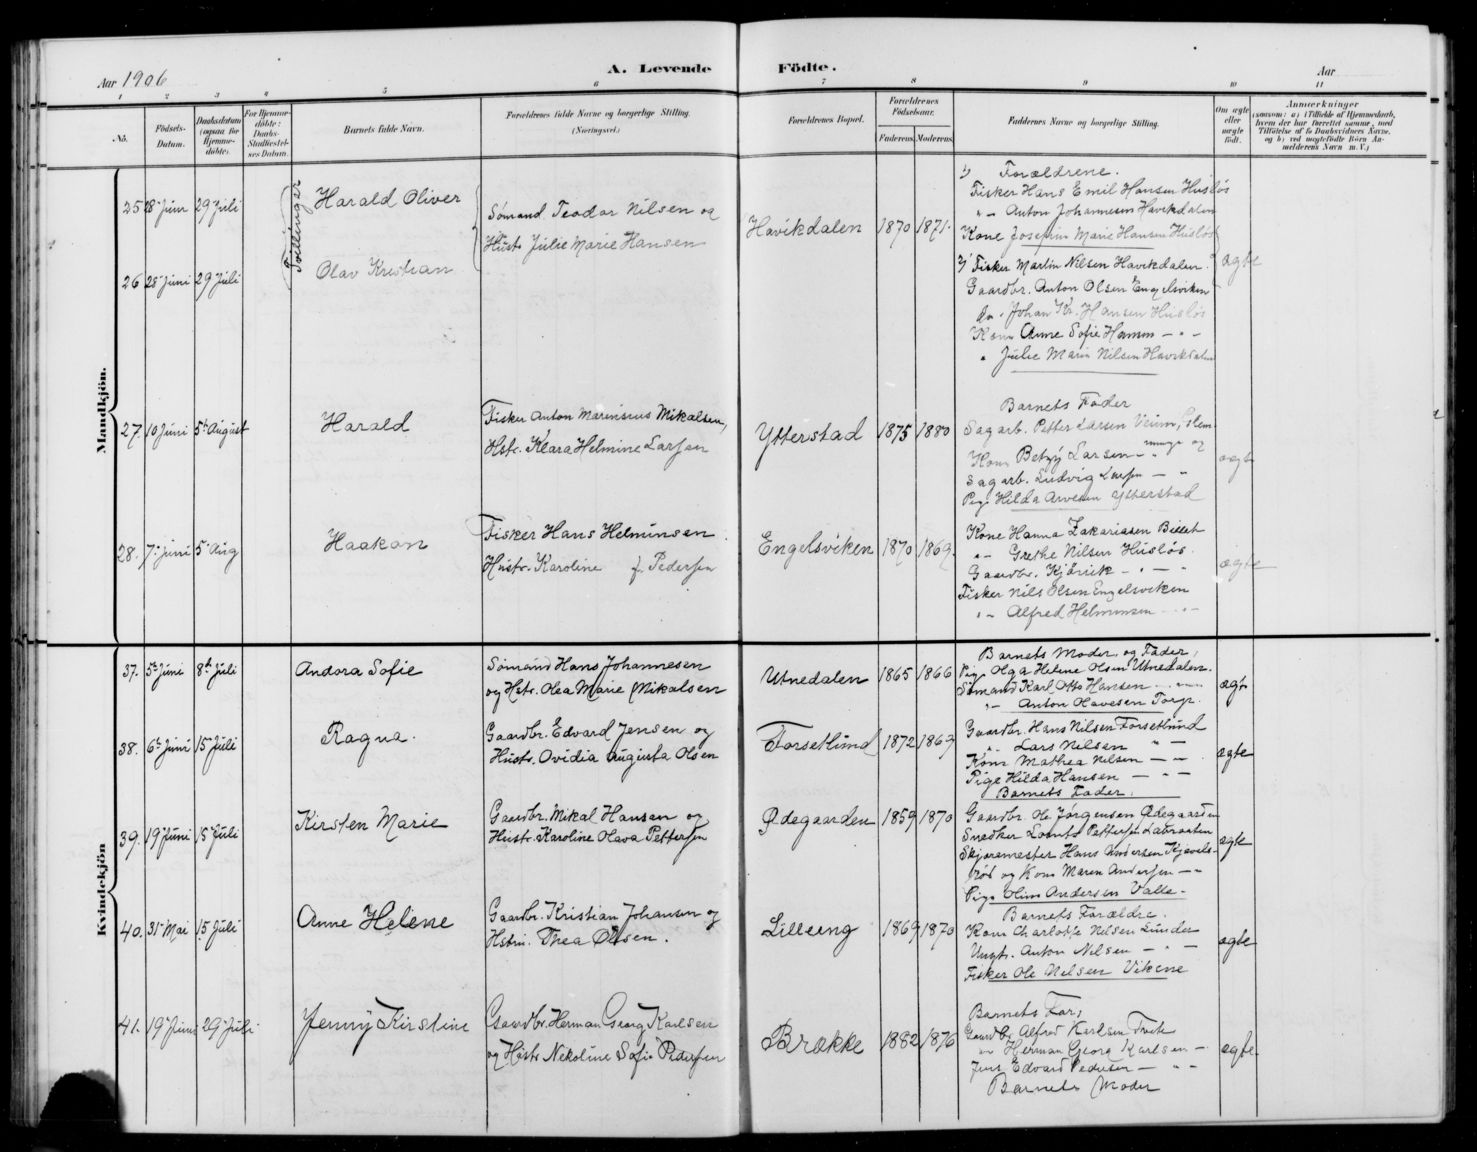 Aar 1906
A. Levende Födte.
Aar
1 2 3 4 5 6 7 8 9 10 11
No.
Födsels-Datum.
Daabsdatum (ogsaa for Hjemme-döbte).
For Hjemme-döbte: Daabs-Stadfæstel-ses Datum.
Barnets fulde Navn.
Forældrenes fulde Navne og borgerlige Stilling. (Næringsvei.)
Forældrenes Bopæl.
Forældrenes Födselsaar.
Faderens. Moderens.
Faddernes Navne og borgerlige Stilling.
Om ægte eller uægte födt.
Anmærkninger
Mandkjön.
Tvillinger
25 28 Juni 29 Juli
Harald Oliver
Sømand Teodor Nilsen og
Hust. Julie Marie Hansen
Havikdalen 1870 1871.
1) Forældrene.
Fisker Hans Emil Hansen Husløs
" - Anton Johannesen Havikdalen
Kone Josefin Marie Hansen Husløs
26 28 Juni 29 Juli
Olav Kristian
2) Fisker Martin Nilsen Havikdalen
ægte
Gaardbr. Anton Olsen Engelsviken
do. Johan Kr. Hansen Husløs
Kone Anne Sofie Hansen - " -
" Julie Marie Nilsen Havikdalen
27. 10 Juni 5te August
Harald
Fisker Anton Marensius Mikalsen,
Hstr. Klara Helmine Larsen
Ytterstad 1875 1880
Barnets Fader
Sagarb. Petter Larsen
Kone Betzy Larsen - "
Sagarb. Ludvig Larsen - "
Pige Hilda Arvesen Ytterstad
ægte
28. 7. Juni 5. Aug
Haakon
Fisker Hans Helminsen
Hustr. Karoline f. Pedersen
Engelsviken 1870 1869.
Kone Hanna Zakariasen
" - Grethe Nilsen Husløs.
Gaardbr. - " - "
Fisker Nils Olsen Engelsviken
" - Alfred Helminsen - " -
ægte
Kvindekjön
37. 5te Juni 8de Juli
Andora Sofie
Sømand Hans Johannesen
og Hstr. Olea Marie Mikalsen
Utnedalen 1865 1866
Barnets Moder og Fader,
Pige Olga Helene Olsen Utnedalen.
Sømand Karl Otto Hansen - " -
" - Anton Havesen Torp.
38. 6te Juni 15 Juli
Ragna.
Gaardbr. Edvard Jensen og
Hustr. Ovidia Augusta Olsen
Forsetlund 1872 1867
Gaardbr. Hans Nilsen Forsetlund
" Lars Nilsen " -
Kone Mathea Nilsen - " -
Pige Hilda Hansen - " -
Barnets Fader.
ægte
39. 19 Juni 15 Juli
Kirsten Marie
Gaardbr. Mikal Hansen og
Hustr. Karoline Olava Pettersen
Ødegaarden 1859 1870
Gaardbr. Ole Jørgensen Ødegaarden
Snedker Pettersen
Skjæremester Hans Andersen
og Kone Maren Andersen - "
Pige Andersen Valle.
ægte
40. 31 Mai 15 Juli
Anne Helene
Gaardbr. Kristian Johansen og
Thea Olsen.
Lilleeng 1869 1870
Barnets Forældre.
Kone Charlotte Nilsen Lunder
Ungk. Anton Nilsen - " -
Fisker Ole Nilsen Vikene
ægte
41. 19 Juni 29 Juli
Jenny Kirstine
Gaardbr. Herman Georg Karlsen
og Hustr. Nekoline Sofie Pedersen
Brække 1882 1876
Barnets Far,
Gaardbr. Alfred Karlsen
" Herman Georg Karlsen -
Jens Edvard Pedersen - " -
Barnets Moder
ægte